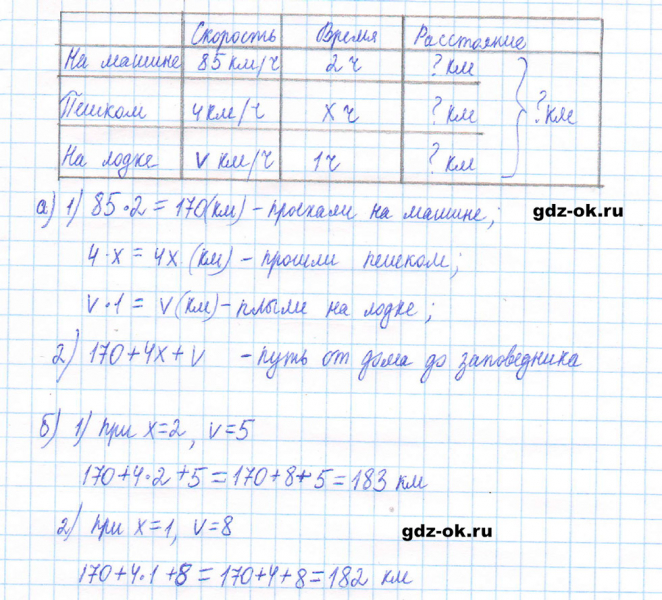 Скорость Время Расстояние
На машине 85 км/ч 2 ч ? км
Пешком 4 км/ч x ч ? км ? км
На лодке v км/ч 1 ч ? км
а) 1) 85·2 = 170 (км) - проехали на машине;
gdz-ok.ru
4·x = 4x (км) - прошли пешком;
v·1 = v (км) - плыли на лодке;
2) 170+4x+v - путь от дома до заповедника
б) 1) при x=2, v=5
170+4·2+5 = 170+8+5 = 183 км
2) при x=1, v=8
gdz-ok.ru
170+4·1+8 = 170+4+8 = 182 км